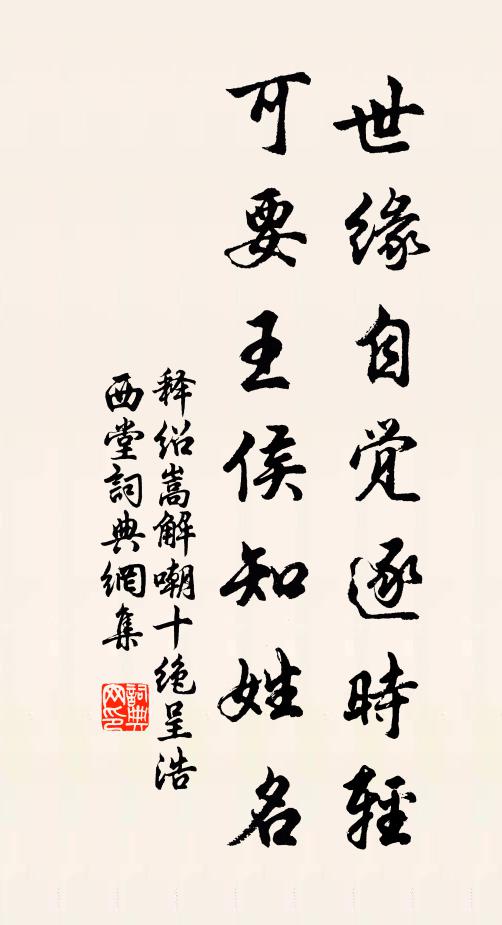 世缘自觉逐時輕
可要王侯知姓名
释绍嵩解嘲十绝呈浩
西堂詞典網集
詞典网印